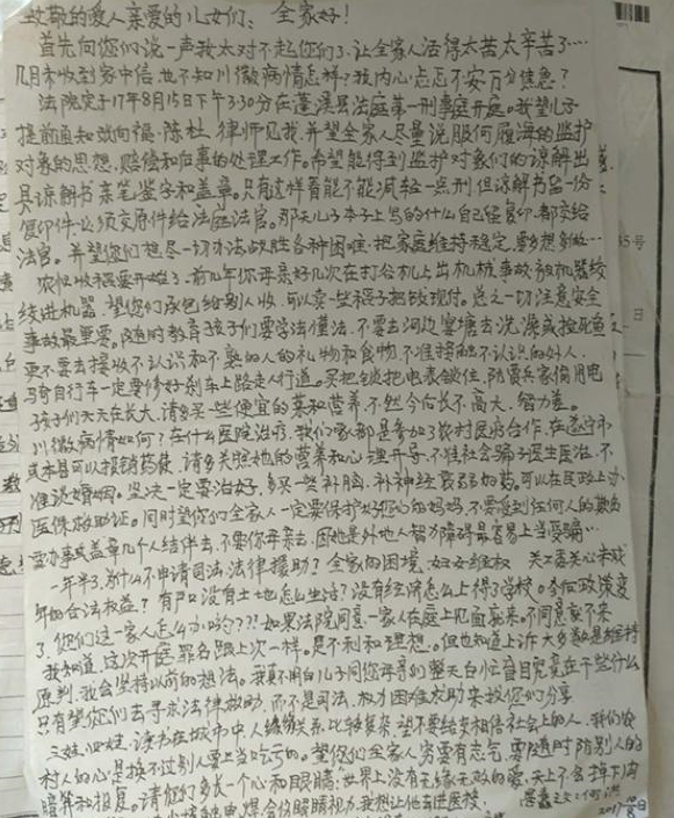 致敬的爱人亲爱的儿女们：全家好！
首先向你们说一声我太对不起你们了，让全家人活得太苦太辛苦了…
几月未收到家中信，也不知川微病情怎样？我内心忐忑不安万分焦急？
法院定于17年8月15日下午3:30分在蓬溪县法庭第一刑事庭开庭。我望儿子
提前通知 陈杜 律师见我，并望全家人尽量说服何履海的监护
对象的思想，赔偿和后事的处理工作。希望能得到监护对象们的谅解出
具谅解书亲笔鉴字和盖章。只有这样看能不能减轻一点刑，但谅解书留一份
复印件，必须交原件给法庭法官。那天儿子本子上写的什么自己经复印，都交给
法官。并望您们想尽一切办法战胜各种困难，把家庭维持稳定，
农忙收稻要开始了，前几年你母亲好几次在打谷机上出机械事故，被机器绞
绞进机器，望您们承包给别人收，可以卖一些稻子把钱现付。总之一切注意安全
事故最重要。随时教育孩子们要学法懂法，不要去河边堰塘去洗澡或捡死鱼
更不要去接收不认识和不熟的人的礼物和食物，不准接触不认识的外人，
骑自行车一定要修好刹车上路走人行道。买把锁把电表锁住，防 家偷用电
孩子们天天在长大，请多买一些便宜的菜和营养，不然今后长不高大，智力差。
川微病情如何？在什么医院治疗，我们家都是参加了农村医疗合作，在遂宁市
或本县可以报销药徒，请多关照她的营养和心理开导，不准社会骗子医生医治，不
准说婚姻。坚决一定要治好，多买一些补脑，补神经衰弱的药。可以在民政上办
医保救助证。同时望您们全家人一定要保护好你们的妈妈，不要受到任何人的欺负
要办事或盖章几个人结伴去，不要你母亲去，因她是外地人智力障碍最容易上当受骗…
一年半了，为什么不申请司法，法律援助？全家的困境，妇女维权
年的合法权益？有户口没有土地怎么生活？没有经济怎么上得了学校。今后政策变
了，您们这一家人怎么办哟？？？！如果法院同意一家人在庭上见面就来，不同意就不来
我知道，这次开庭罪名跟上次一样。是不利和理想。但也知道上诉大多数是维持
原判，我会坚持以前的想法。我真不明白儿子同您母亲们整天白忙 究竟在干些什么
只有望你们去寻求法律救助，而不是司法，权力困难求助来救您们分享
三娃，四娃，读书在城市中，人缘关系，比较复杂，望不要结交相信社会上的人，我们农
村人的心是换不过别人要上当吃亏的。望你们全家人穷要有志气，要随时防别人的
暗算和报复。请您们多长一个心和眼睛，世界上没有无缘无故的爱，天上不会掉下肉
电焊会伤眼睛视力，我想让他去进医校，
愚蠢之父：何洪
2017
45号
日